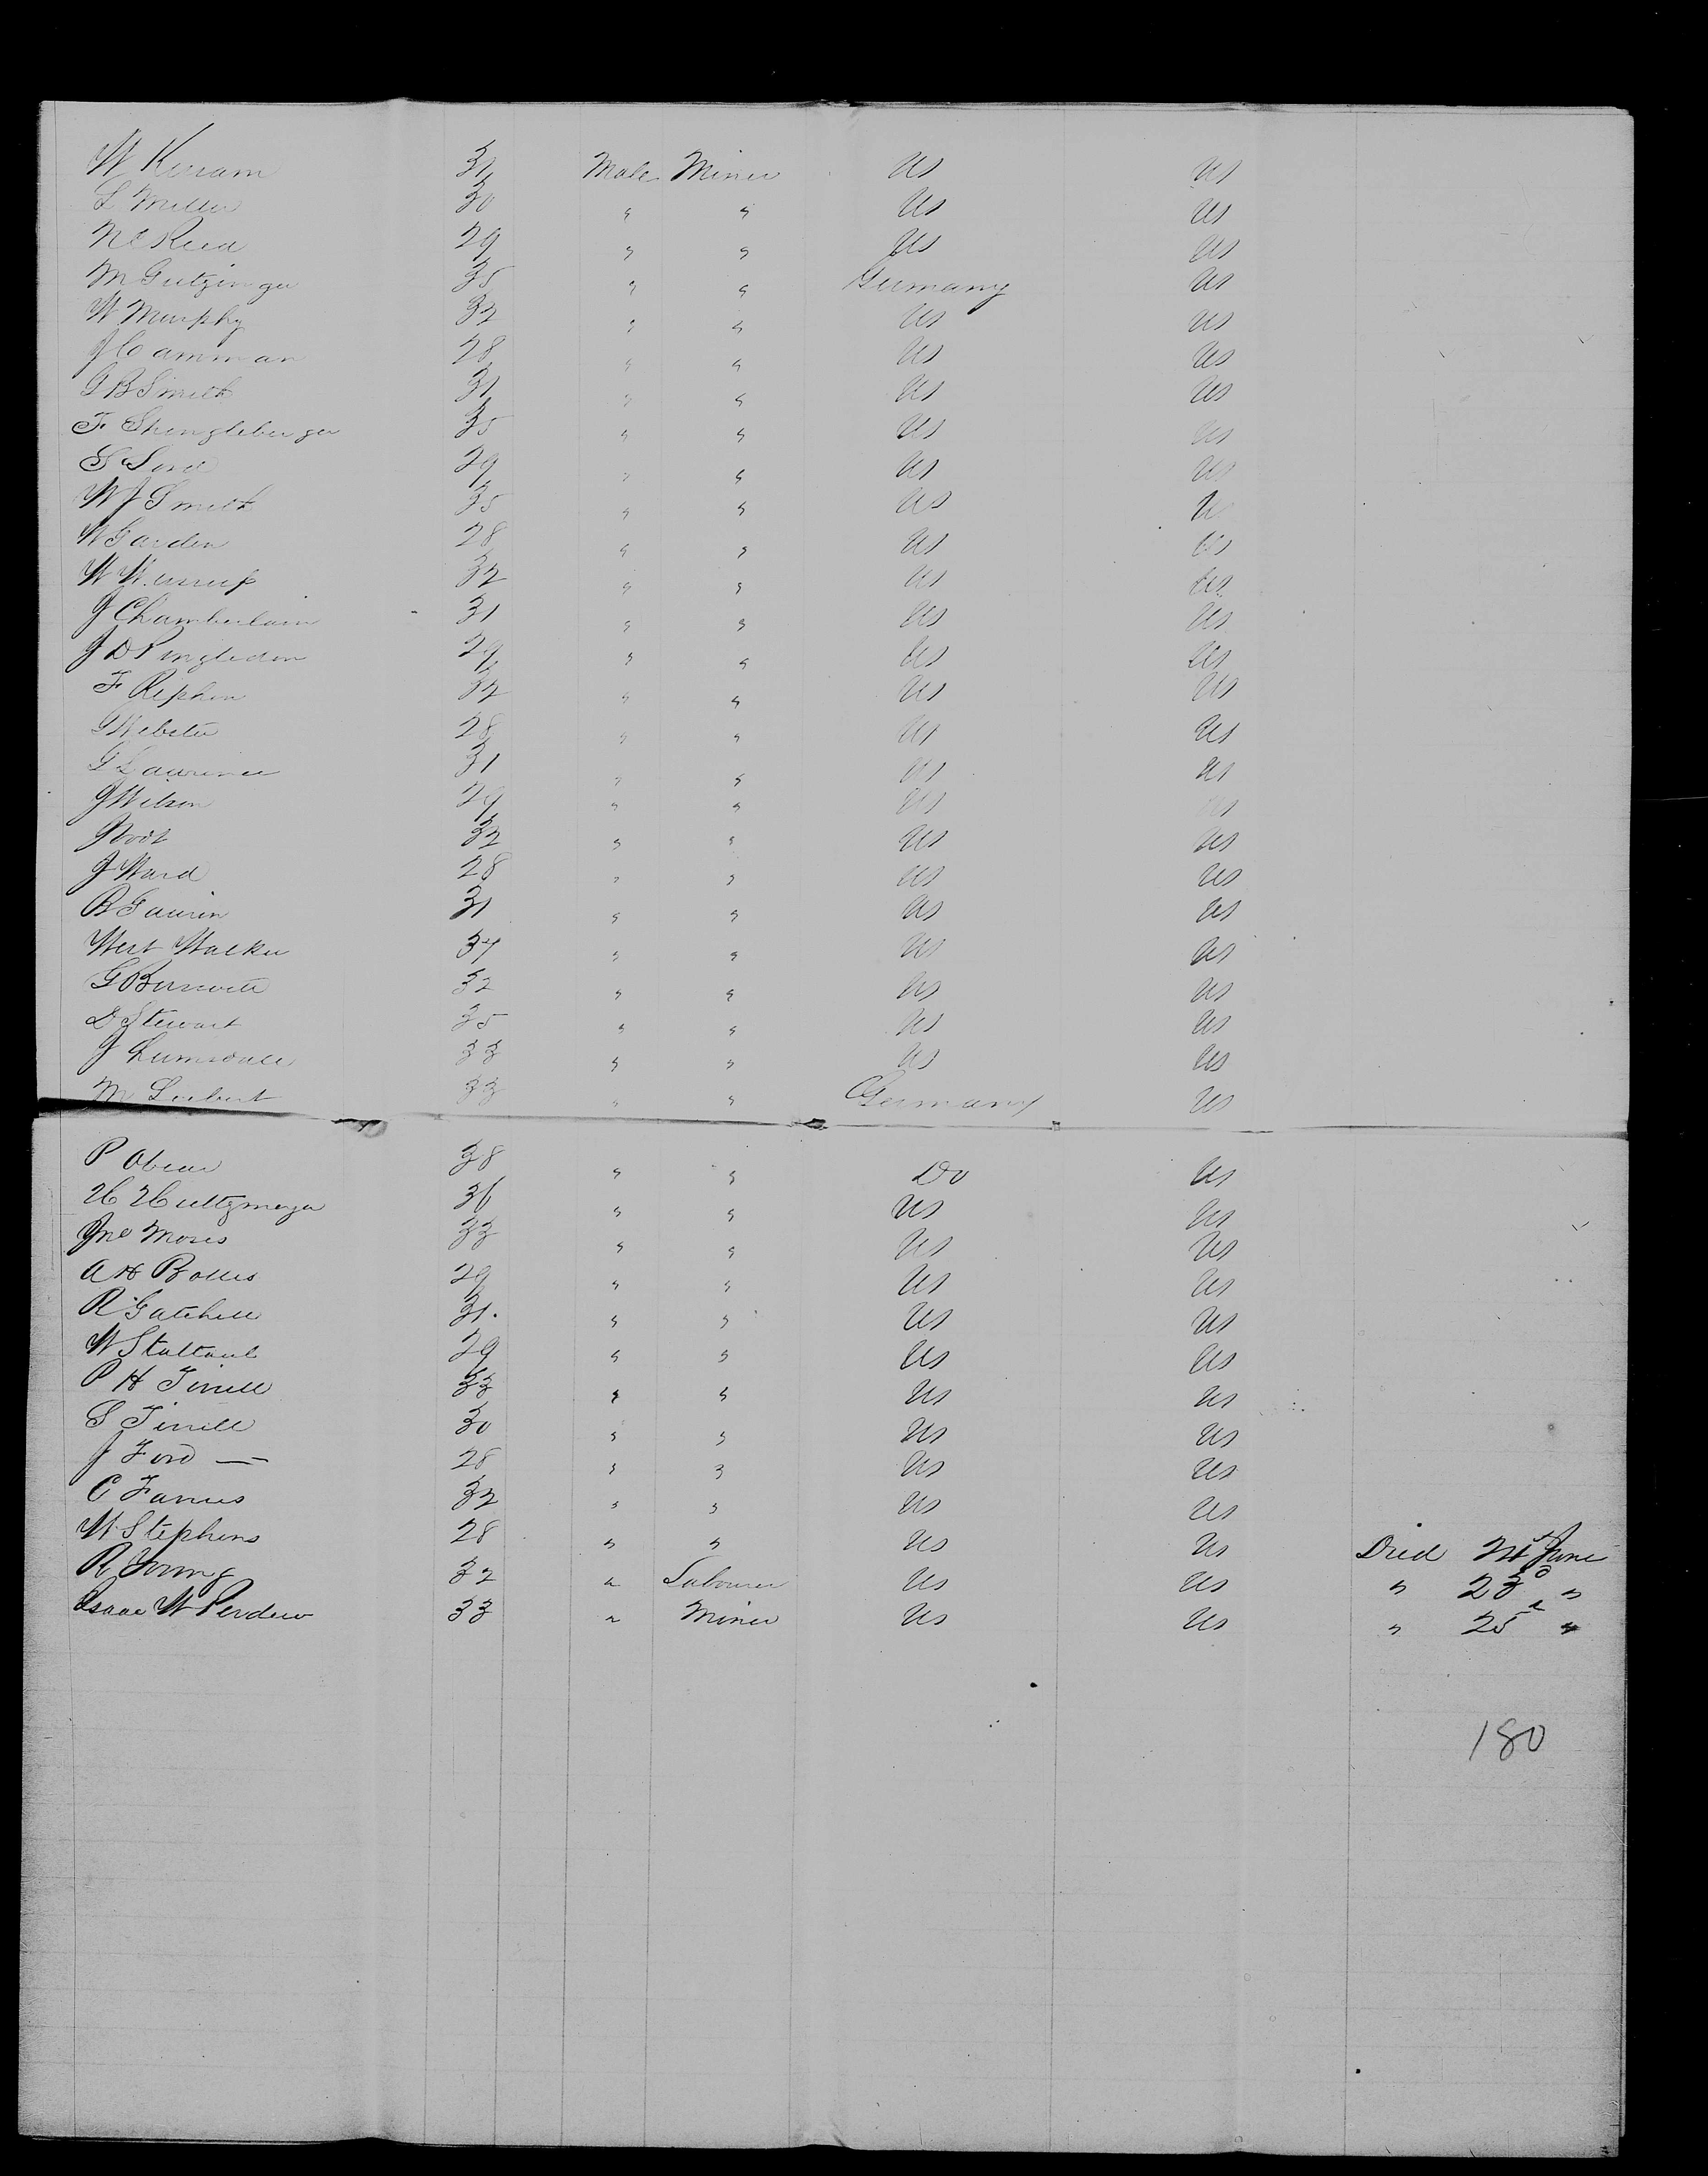 W Kissam 31 Male Miner US US
L Miller 30 " " US US
N C Reed 29 " " US US
M Gutzinger 35 " " Germany US
W Murphy 32 " " US US
J Camman 28 " " US US
G B Smith 31 " " US US
F Shingleberger 35 " " US US
S 29 " " US US
W J Smith 35 " " US U
W Garden 28 " " US US
W 32 " " US US
J Chamberlain 31 " " US US
J D Pingledon 29 " " US US
F Rephen 32 " " US US
G Webster 28 " " US US
G Laurence 31 " " US US
J Wilson 29 " " US US
32 " " US US
J Ward 28 " " US US
B Gauvin 31 " " US US
West Walker 34 " " US US
G 32 " " US US
D Stewart 35 " " US US
J Lumsdale 33 " " US US
M 33 " " Germany US
P Obear 38 " " Do US
H Hultzmeyer 36 " " US US
Jno Moses 33 " " US US
A H Bolles 29 " " US US
R Gatchell 31. " " US US
W 29 " " US US
P H Tirrell 33 " " US US
S Tirrell 30 " " US US
J Ford — 28 " " US US
C 32 " " US US
W Stephens 28 " " US US Died 21st June
R Young 32 " Labourer US US " 23d "
Isaac W Perdew 33 " Miner US US " 25th "
180